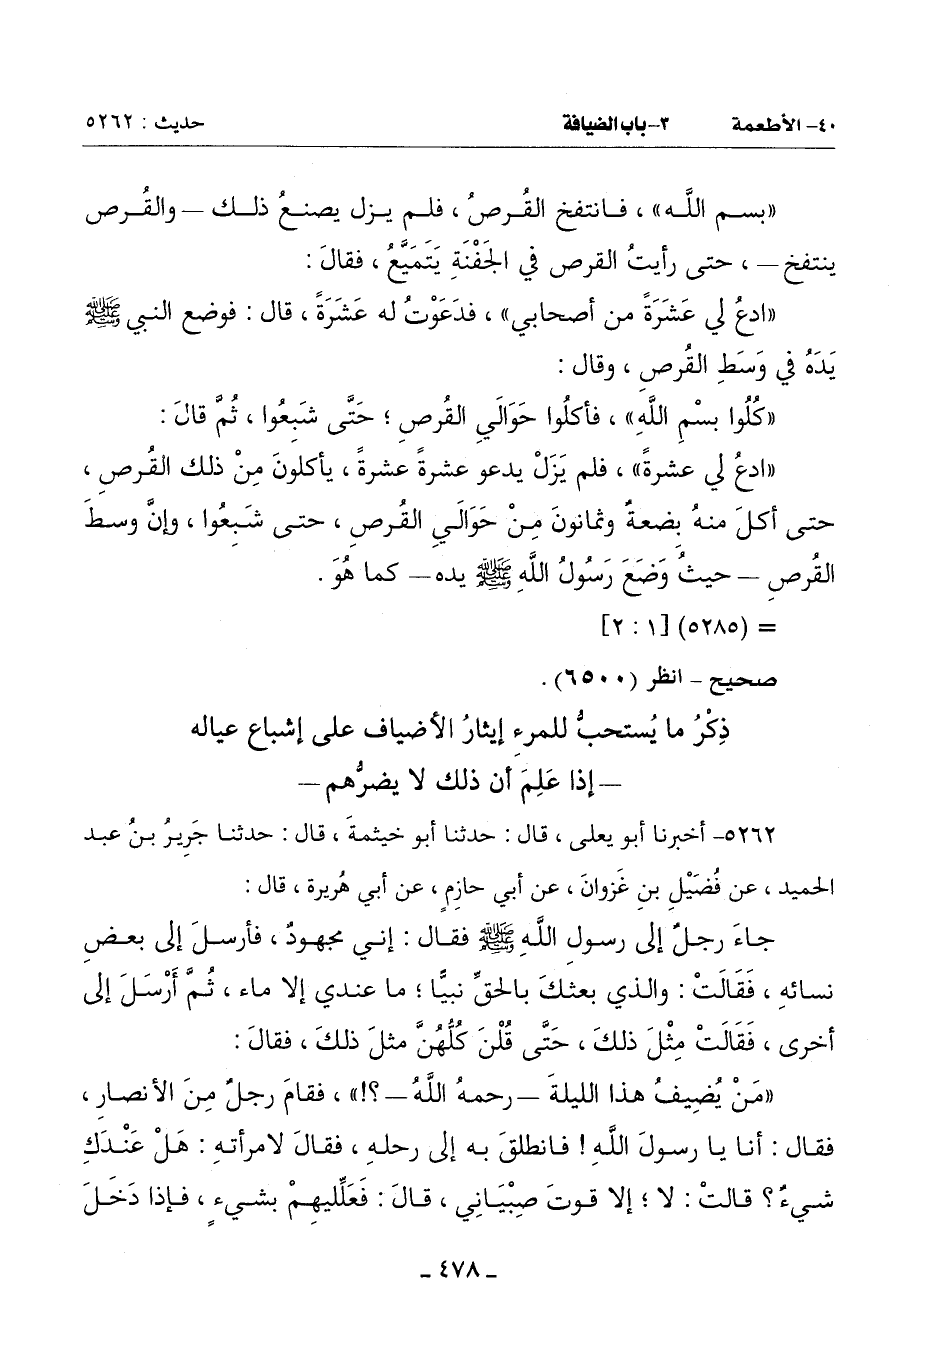 ٤٠- الأطعمة ٣-باب الضيافة حديث : ٥٢٦٢
«بسم اللَّه» ، فانتفخ القُرصُ ، فلم يزل يصنعُ ذلك – والقُرص
ينتفخ – ، حتى رأيتُ القرص في الجَفْنَةِ يَتَمَيَّعُ ، فقالَ :
«ادعُ لي عَشَرَةً من أصحابي» ، فدَعَوْتُ له عَشَرَةً ، قال : فوضع النبي ﷺ
يَدَهُ في وَسَطِ القُرصِ ، وقال :
«كُلُوا بسْمِ اللَّهِ» ، فأكلُوا حَوَالَيِ القُرصِ ؛ حَتَّى شَبِعُوا ، ثُمَّ قالَ :
«ادعُ لي عشرةً» ، فلم يَزَلْ يدعو عشرةً عشرةً ، يأكلونَ مِنْ ذلك القُرصِ ،
حتى أكلَ منهُ بِضعةٌ وثمانونَ مِنْ حَوَالَيِ القُرصِ ، حتى شَبِعُوا ، وإنَّ وسطَ
القُرصِ – حيثُ وَضَعَ رَسُولُ اللَّهِ ﷺ يده – كما هُوَ .
= (٥٢٨٥) [١ : ٢]
صحيح - انظر (٦٥٠٠) .
ذِكْرُ ما يُستحبُّ للمرءِ إيثارُ الأضياف على إشباع عياله
– إذا عَلِمَ أن ذلك لا يضرُّهم –
٥٢٦٢- أخبرنا أبو يعلى ، قال : حدثنا أبو خيثمةَ ، قال : حدثنا جَرِيرُ بنُ عبد
الحميد ، عن فُضَيْلِ بنِ غَزوانَ ، عن أبي حازِمٍ ، عن أبي هُريرة ، قال :
جاءَ رجلٌ إلى رسول اللَّهِ ﷺ فقال : إني مجهودٌ ، فأرسلَ إلى بعضِ
نسائهِ ، فَقَالَتْ : والذي بعثكَ بالحقِّ نبيًّا ؛ ما عندي إلا ماء ، ثُمَّ أَرْسَلَ إلى
أخرى ، فَقَالَتْ مِثْلَ ذلكَ ، حَتَّى قُلْنَ كُلُّهُنَّ مثلَ ذلكَ ، فقالَ :
«مَنْ يُضيفُ هذا الليلةَ – رحمهُ اللَّهُ – ؟!» ، فقامَ رجلٌ مِنَ الأنصار ،
فقال : أنا يا رسولَ اللَّهِ ! فانطلقَ به إلى رحلهِ ، فقالَ لامرأته : هَلْ عَنْدَكِ
شيءٌ ؟ قالتْ : لا ؛ إلا قوتَ صِبْيَاني ، قالَ : فَعَلِّليهِمْ بشيءٍ ، فإذا دَخَلَ
ـ ٤٧٨ ـ